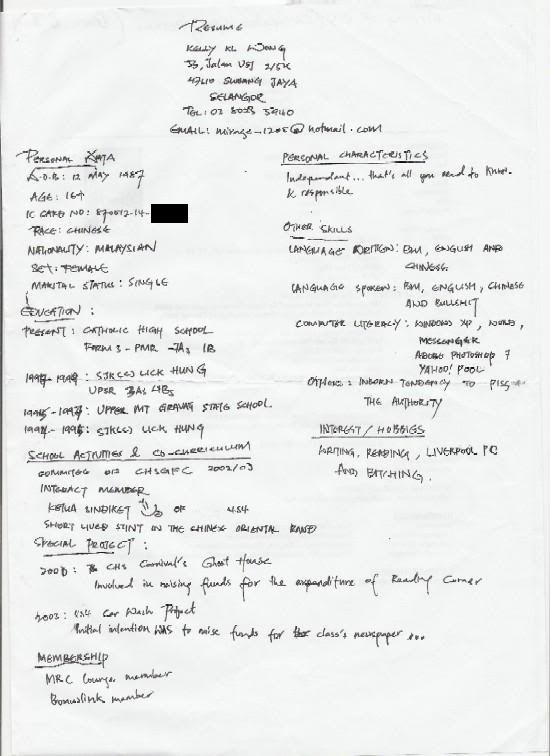 RESUME
KELLY KL WONG
33, Jalan USJ 2/5K
47610 SUBANG JAYA
SELANGOR
TEL: 03 8023 5940
EMAIL: mirage_1205@hotmail.com
PERSONAL DATA
D.O.B: 12 MAY 1987
AGE: 16+
IC CARD NO: 870512-14-
RACE: CHINESE
NATIONALITY: MALAYSIAN
SEX: FEMALE
MARITAL STATUS: SINGLE
EDUCATION :
PRESENT: CATHOLIC HIGH SCHOOL
FORM 3 - PMR - 7A, 1B
SJK(C) LICK HUNG
UPSR
UPPER MT GRAVATT STATE SCHOOL
SJK(C) LICK HUNG
SCHOOL ACTIVITIES & CO-CURRICULUM
COMMITEE OF CHSGFC 2002/03
INTERACT MEMBER
KETUA SINDIKET OF 4S4
SHORT LIVED STINT IN THE CHINESE ORIENTAL BAND
SPECIAL PROJECT :
CHS Carnival's Ghost House
Involved in raising funds for the expenditure of Reading Corner
2003: 4S4 Car Wash Project
Initial intention WAS to raise funds for class's newspaper ...
MEMBERSHIP
MRC lounge member
Bonuslink member
PERSONAL CHARACTERISTICS
Independant... that's all you need to know.
& responsible
OTHER SKILLS
LANGUAGE WRITTEN: BM, ENGLISH AND
CHINESE
LANGUAGE SPOKEN: BM, ENGLISH, CHINESE
AND BULLSHIT
COMPUTER LITERACY: WINDOWS XP, WORD,
MESSENGER
ADOBE PHOTOSHOP 7
YAHOO! POOL
OTHERS: INBORN TENDENCY TO PISS
THE AUTHORITY
INTEREST / HOBBIES
WRITING, READING, LIVERPOOL FC
AND BITCHING.